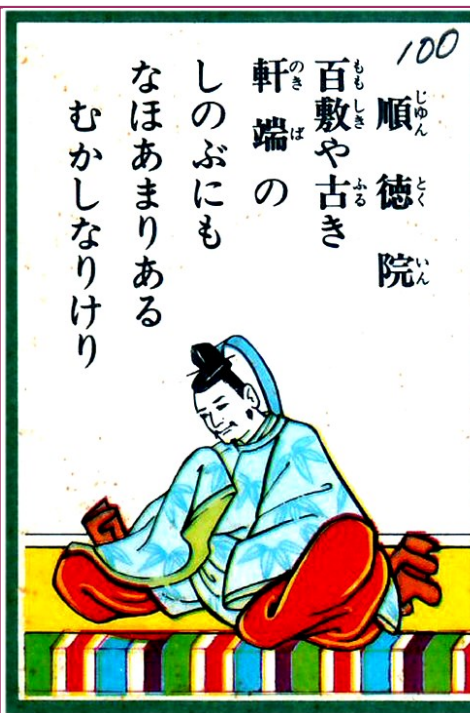 100
順徳院
じゅん とく いん
百敷や古き
ももしき ふる
軒端の
のき ば
しのぶにも
なほあまりある
むかしなりけり